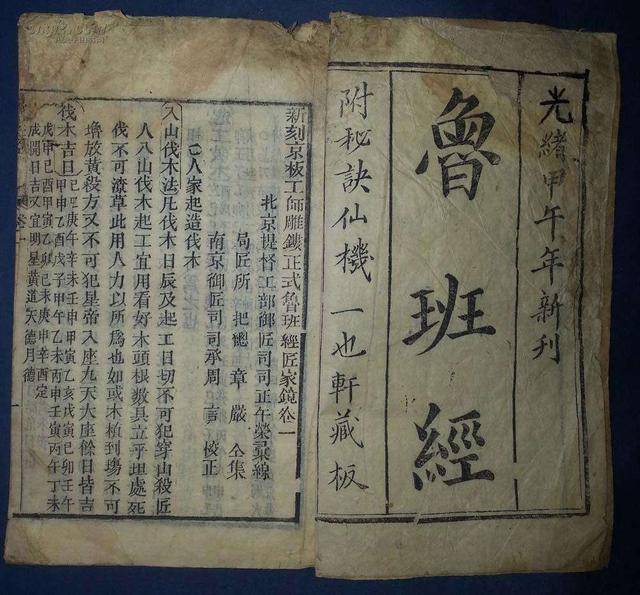 光緒甲午年新刊
魯班經
附秘訣仙機 一也軒藏板
新刻京板工師雕鏤正式魯班經匠家鏡卷一
北京提督工部御匠司司正午榮彙線
局匠所把總章嚴仝集
南京御匠司司承周言校正
人家起造伐木
入山伐木法凡伐木日辰及起工日切不可犯穿山殺匠
人入山伐木起工宜用看好木頭根數具立平坦處死
伐不可潦草此用人力以所為也如或木植到塲不可
堆放黃殺方又不可犯星帝入座九天大座餘日皆吉
伐木吉日
己巳庚午辛未壬申甲寅乙亥戊寅己卯壬午
甲申乙酉戊子甲午乙未丙申壬寅丙午丁未
戊申己酉甲寅乙卯己未庚申辛酉定
成開日吉又宜明星黃道天德月德